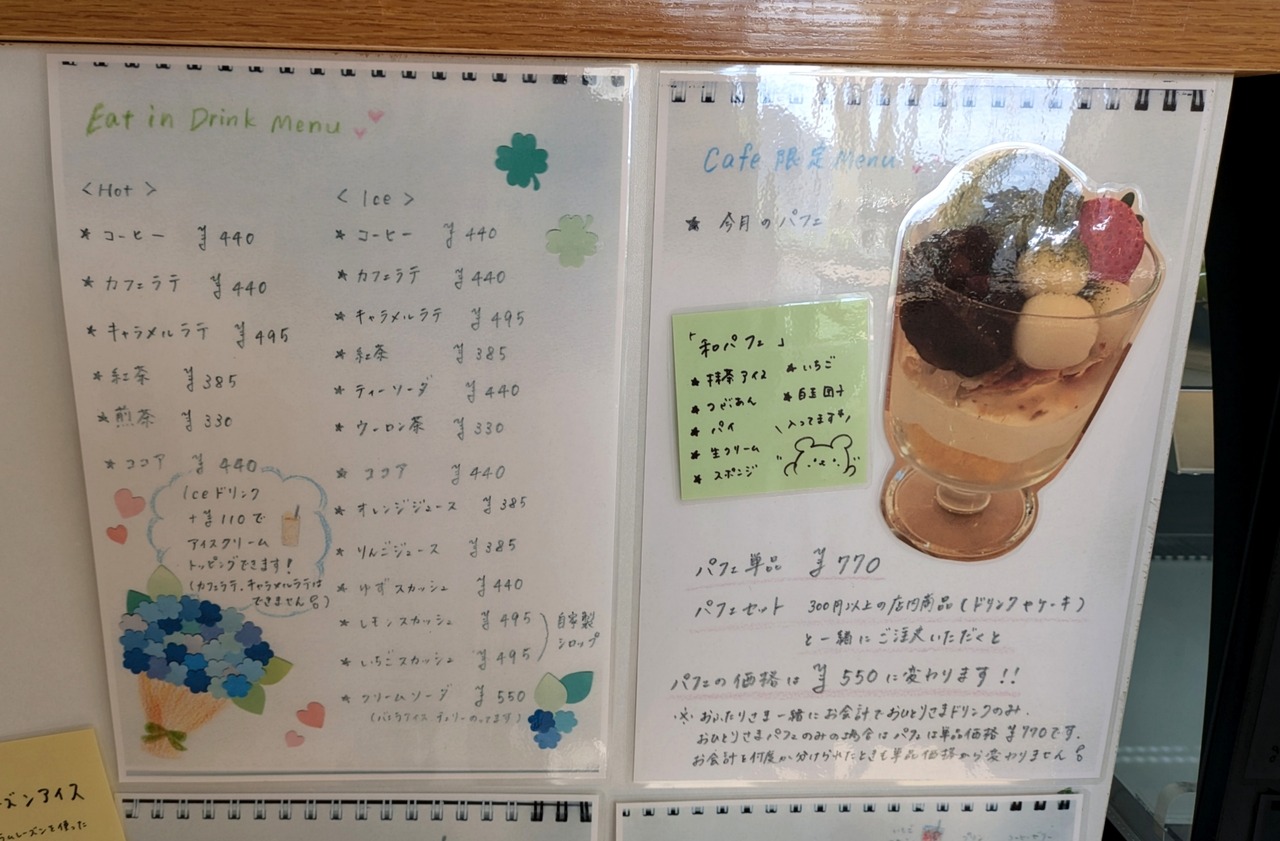 Eat in Drink Menu
< Hot >
* コーヒー ¥440
* カフェラテ ¥440
* キャラメルラテ ¥495
* 紅茶 ¥385
* 煎茶 ¥330
* ココア ¥440
Iceドリンク
+¥110で
アイスクリーム
トッピングできます!
(カフェラテ、キャラメルラテは
できません。)
< Ice >
* コーヒー ¥440
* カフェラテ ¥440
* キャラメルラテ ¥495
* 紅茶 ¥385
* ティーソーダ ¥440
* ウーロン茶 ¥330
* ココア ¥440
* オレンジジュース ¥385
* りんごジュース ¥385
* ゆずスカッシュ ¥440
* レモンスカッシュ ¥495
* いちごスカッシュ ¥495
自家製
シロップ
* クリームソーダ ¥550
(バニラアイス チェリーのってます)
Cafe 限定 Menu
* 今月のパフェ
「和パフェ」
* 抹茶アイス
* つぶあん
* パイ
* 生クリーム
* スポンジ
* いちご
* 白玉団子
\入ってます/
パフェ単品 ¥770
パフェセット 300円以上の店内商品(ドリンクやケーキ)
と一緒にご注文いただくと
パフェの価格は ¥550に変わります!!
※ おふたりさま一緒にお会計でおひとりさまドリンクのみ、
おひとりさまパフェのみの場合はパフェは単品価格¥770です。
お会計を何度か分けられたときも単品価格から変わりません。
ズンアイス
ラムレーズンを使った